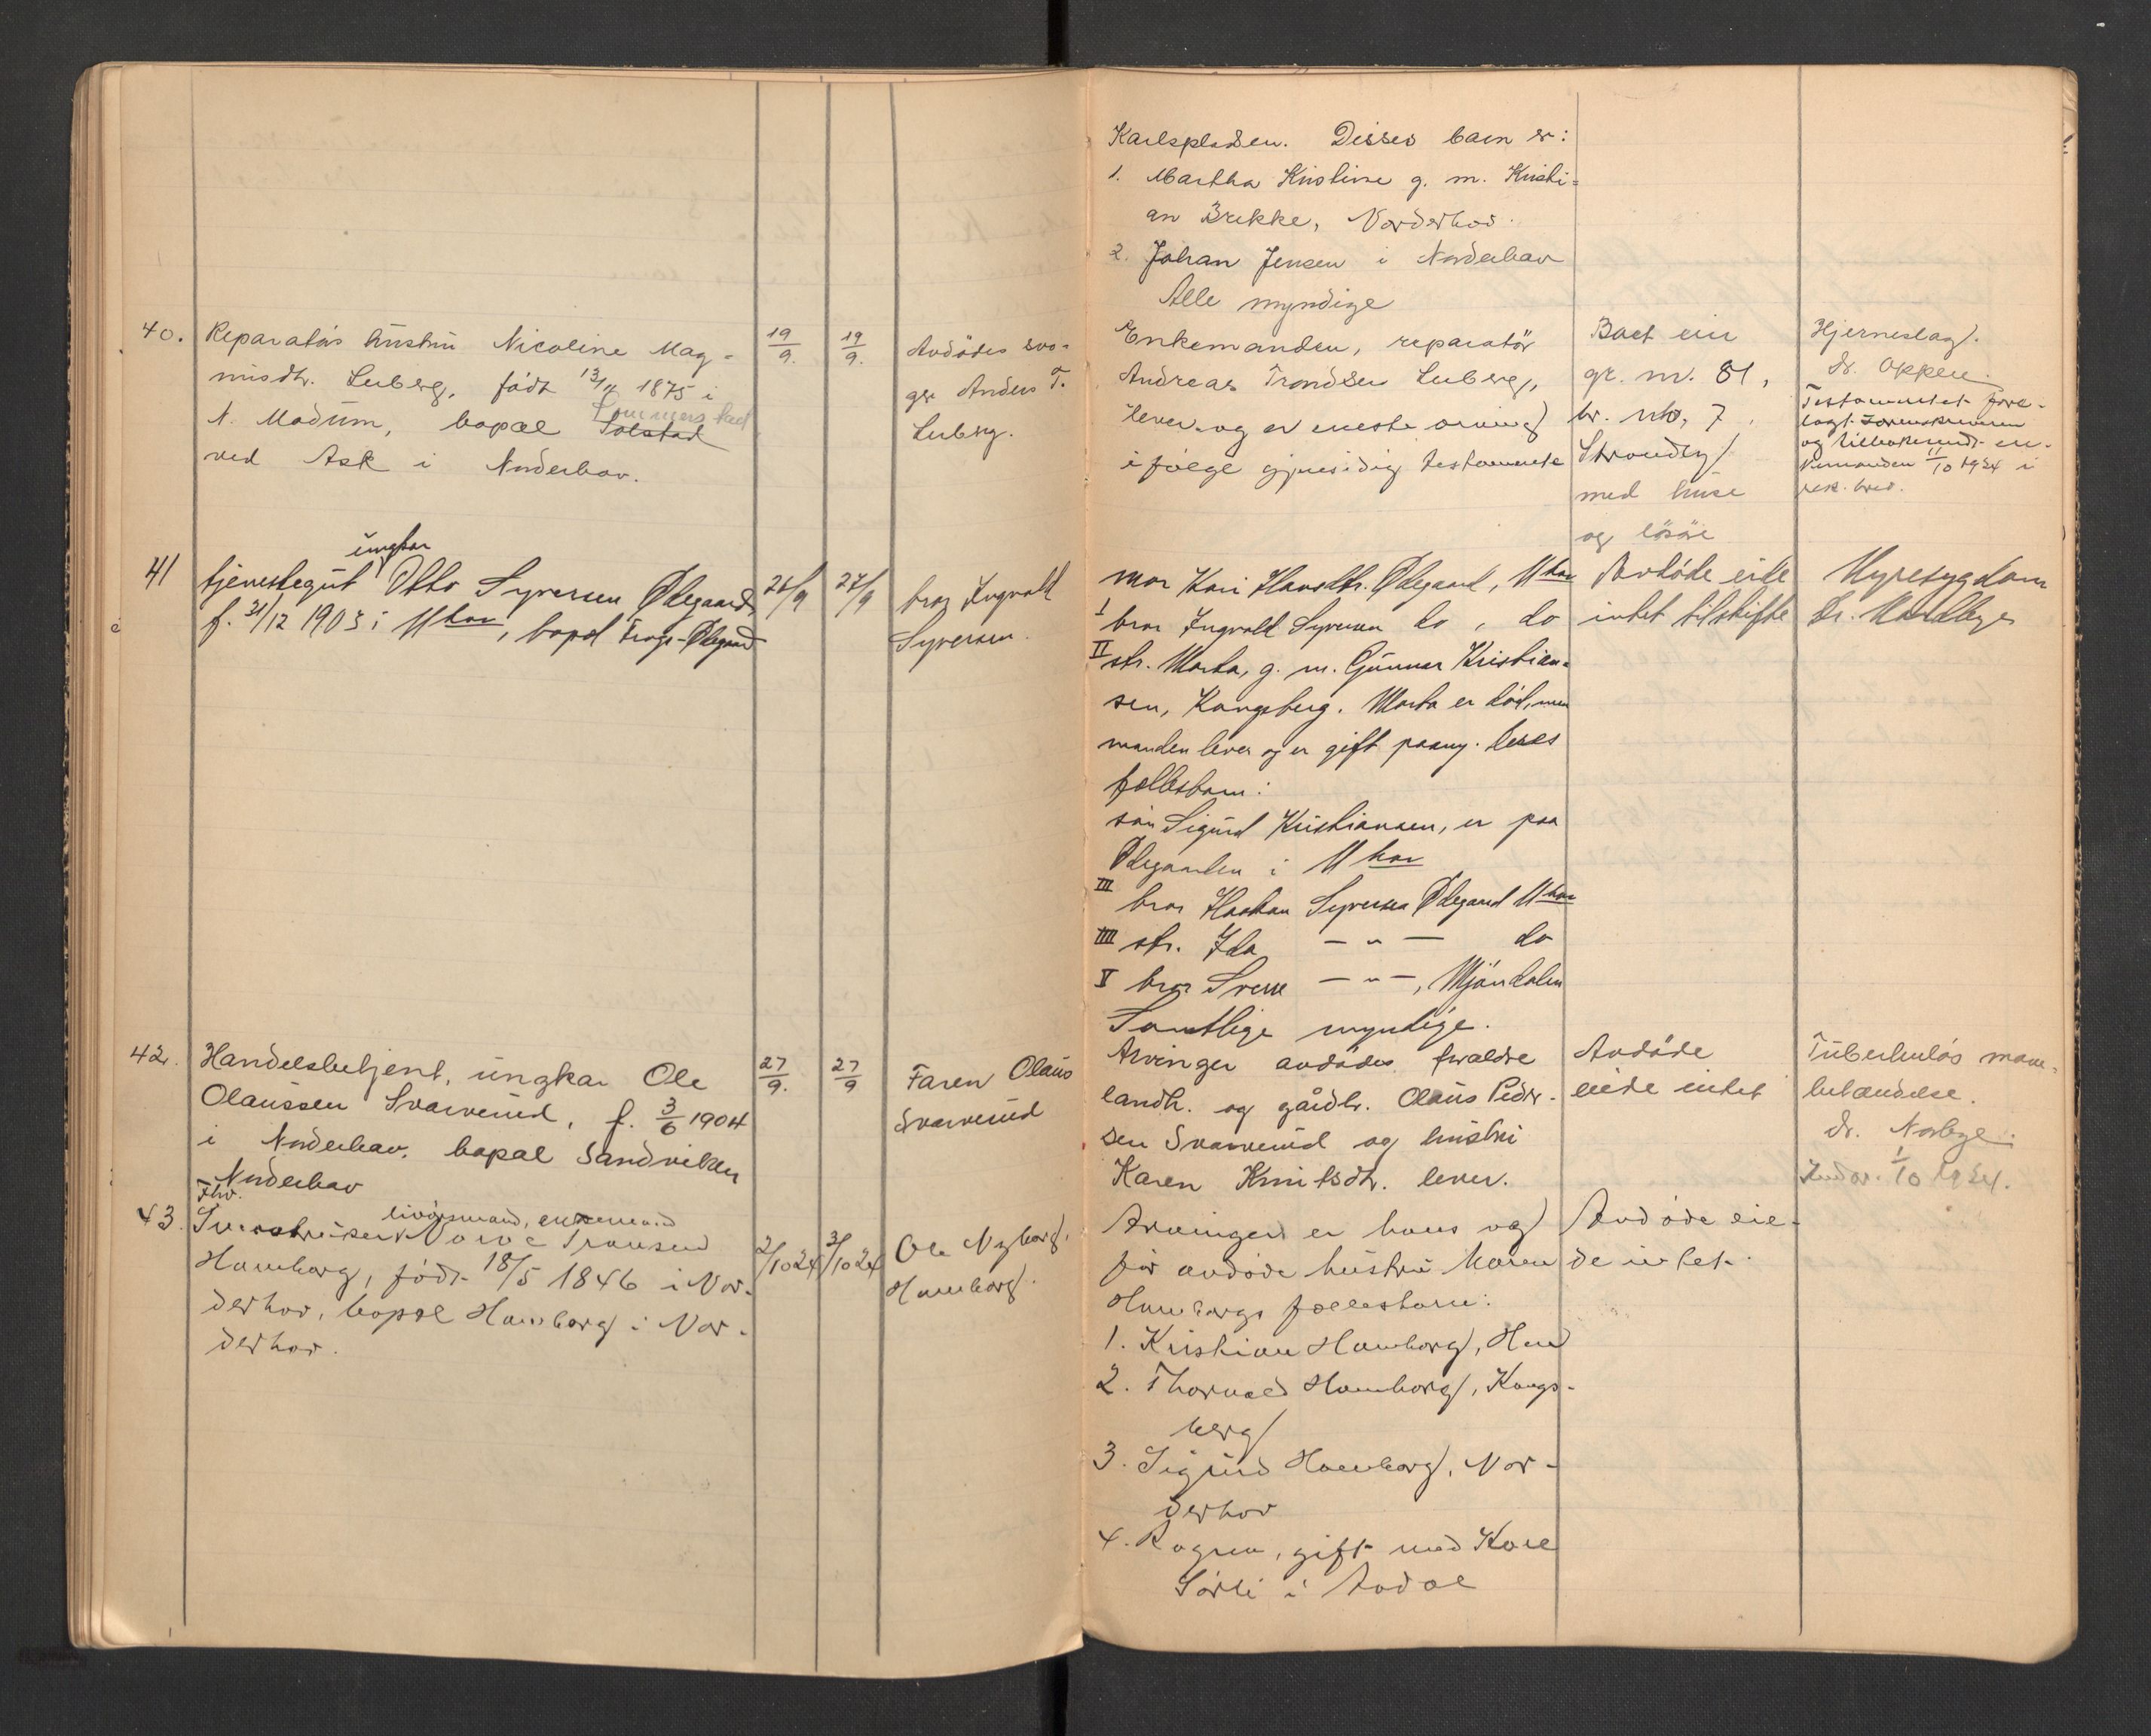 Karlspladsen. Disses barn er:
1. Martha Kristine g. m. Kristi=
an Brekke, Norderhov.
2. Johan Jensen i Norderhov
Alle myndige
40.
Reparatør hustru Nicoline Mag-
nusdtr. Luberg, født 13/11 1875 i
N. Modum, bopæl Solstad
ved Ask i Norderhov.
19/9.
19/9.
Avdødes svo-
ger Anders T.
Luberg.
Enkemanden, reparatør
Andreas Trondsen Luberg,
lever og er eneste arving
ifølge gjensidig testamente
gr. nr. 81,
br. nr. 7,
Strandly
med huse
og løsøre
Hjerneslag.
dr. Oppen.
Testamentet fore-
lagt Sorenskriveren
og tilbakesendt en-
kemanden 11/10 1924 i
rek. brev.
41
ungkar
tjenestegut Otto Syversen Ødegaard
f. 31/12 1903 i N hov, bopæl Frogs-Ødegaard
26/9
27/9
bror Ingvald
Syversen.
mor Kari Hansdtr. Ødegaard, N hov
I bror Ingvald Syversen do, do
II str. Marta, g. m. Gunnar Kristian-
sen, Kongsberg. Marta er død, men
manden lever og er gift paany. Deres
fællesbarn:
søn Sigurd Kristiansen, er paa
Ødegaarden i N hov
III bror Haakon Syversen Ødegaard N hov
IIII str. Ida — „ — do
V bror Sverre — „ —, Mjøndalen
Samtlige myndige.
Avdøde eide
intet til skifte
Nyresygdom
Dr. Nordbye
42.
Handelsbetjent, ungkar Ole
Olaussen Svarverud, f. 3/6 1904
i Norderhov, bopæl Sandviken
Norderhov
27/9.
27/9
Faren Olaus
Svarverud
Arvinger avdødes foreldre
landh. og gårdbr. Olaus Peder-
sen Svarverud og hustru
Karen Knutsdtr. lever.
Avdøde
eiede intet
Tuberkuløs mave-
betændelse.
dr. Norbye.
Indsv. 1/10 1924.
43.
Fhv.
livørsmand, enkemand
Transen
Hamborg, født 18/5 1846 i Nor-
derhov, bopæl Hamborg i Nor-
derhov.
2/10 24
3/10 24
Ole Nyborg,
Hamborg.
Arvinger er hans og
før avdøde hustru Maren
Hamborgs fællesbarn:
1. Kristian Hamborg, Hen
2. Thorvald Hamborg, Kongs-
berg
3. Sigurd Hamborg, Nor-
derhov
4. Ragna, gift med Kare
Sørli i Aadal
Avdøde eie-
de intet.